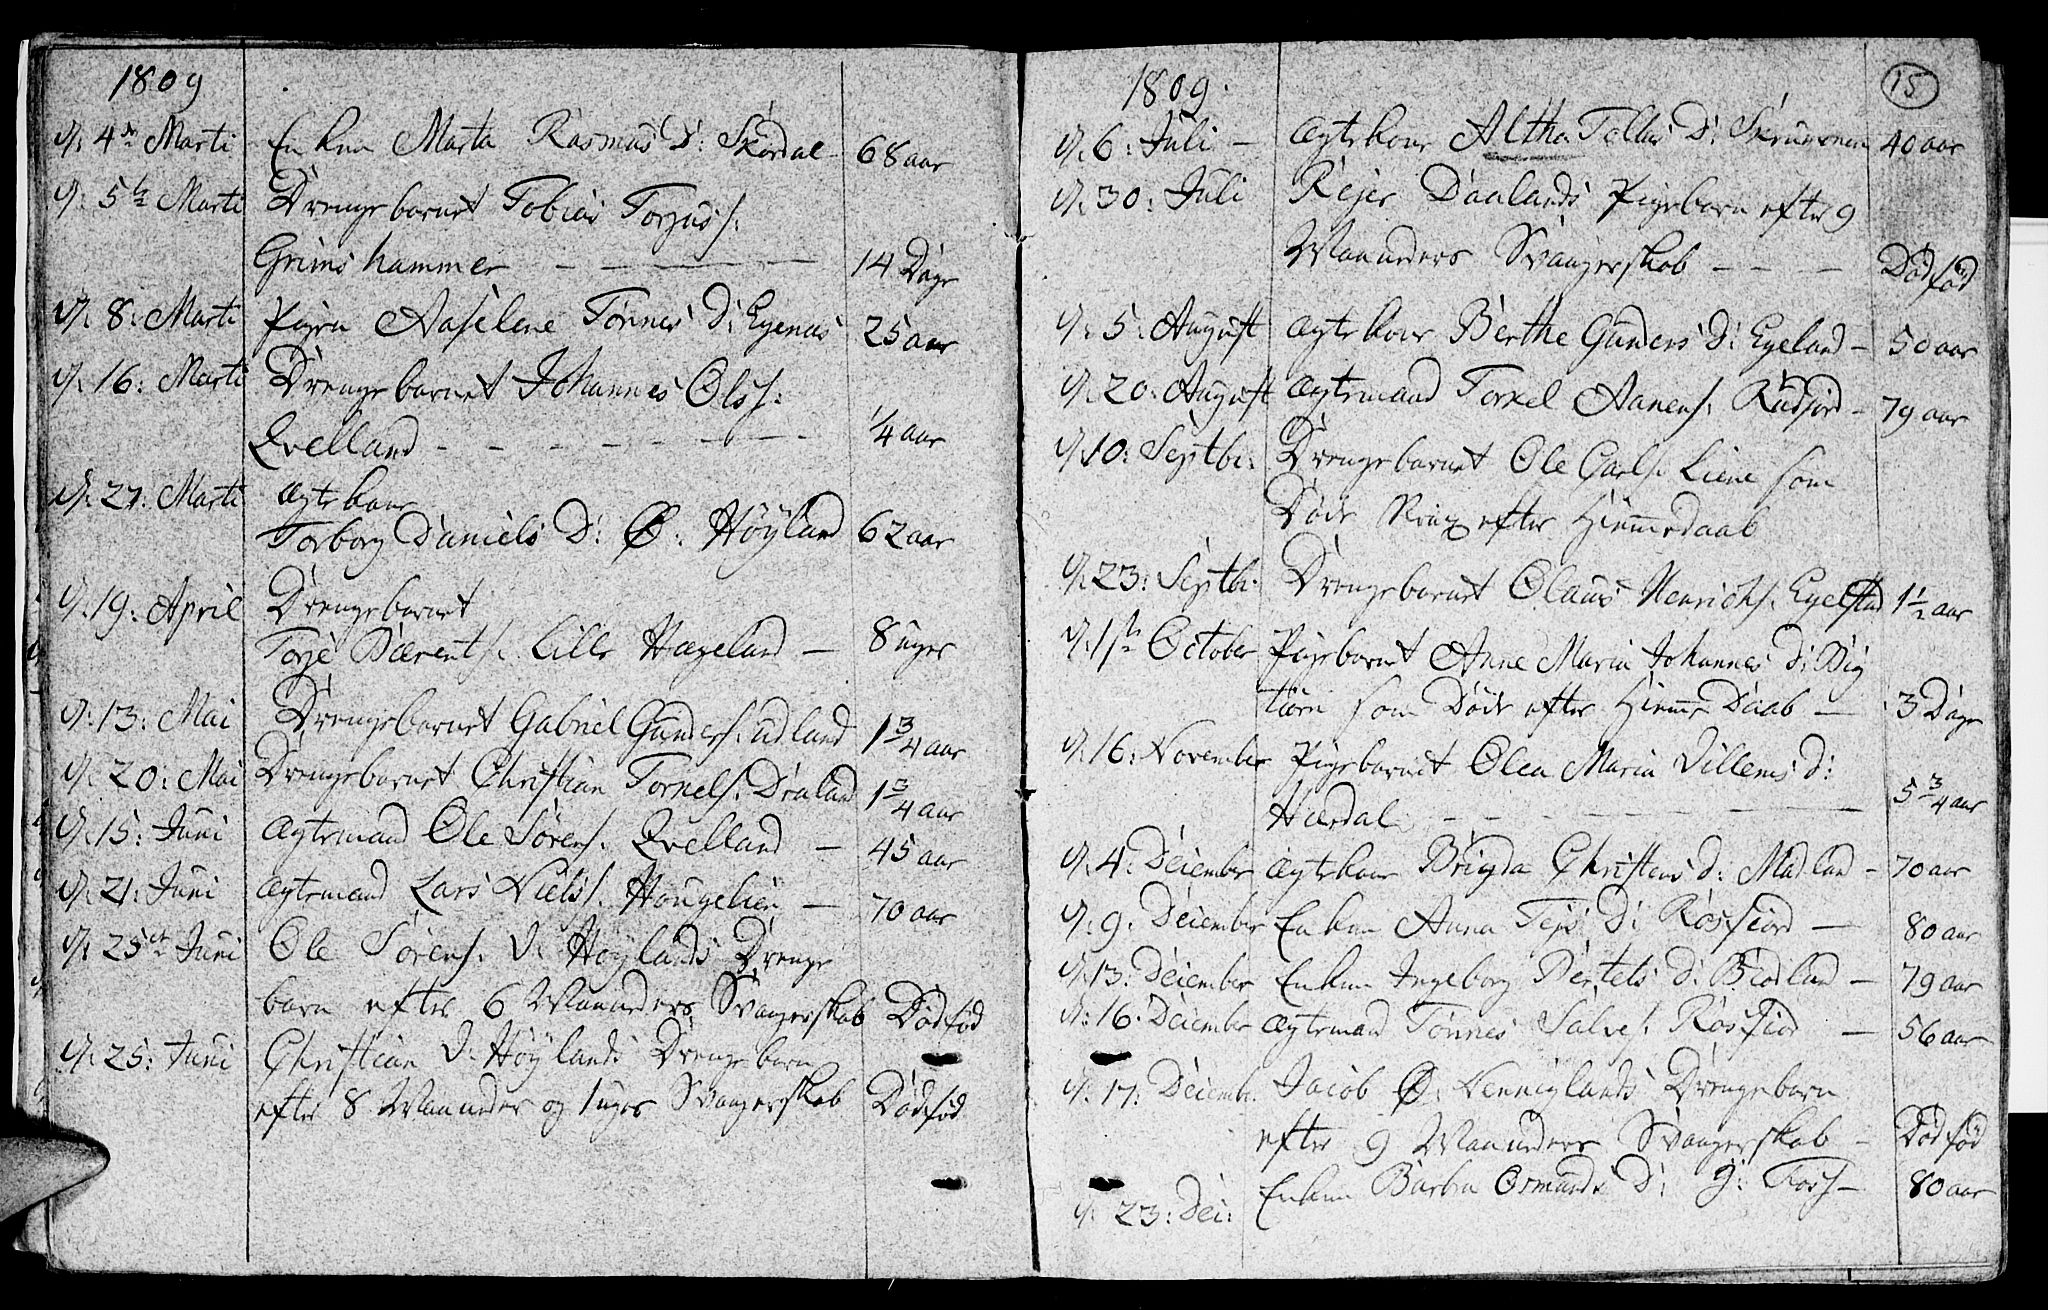 1809
d: 4de Marti Enken Marta Rasmus D: Skørdal 68 aar
d: 5te Marti Drengebarnet Tobias Torjus s:
Grimshammer — — — — 14 Dage
d: 8: Marti Pigen Aaselene Tønnes D: Egenæs 25 aar
d: 16: Marti Drengebarnet Johannes Ols s:
Qvelland - - - - - - - 1/4 aar
d: 27: Marti Ægtekone
Torborg Daniels D: Ø: Høyland 62 aar
d: 19: April Drengebarnet
Torje Bærent s: Lille Hægeland — 8 uger
d: 13: Mai Drengebarnet Gabriel Gunders: Udland 1 3/4 aar
d: 20: Mai Drengebarnet Christian Torkels: Draland 1 3/4 aar
d: 15: Juni Ægtemand Ole Sørens: Qvelland — 45 aar
d: 21: Juni Ægtemand Lars Niels s: Hougelien — 70 aar
d: 25de Juni Ole Sørens: V: Høylands Drenge
barn efter 6 Maaneders Svangerskab Dødfød
d: 25: Juni Christian V: Høylands Drengebarn
efter 8 Maaneder og 1 uges Svangerskab Dødfød
1809.
15
d: 6: Juli — Ægtekone Altha Tollis D: Skrumoen 40 aar
d: 30: Juli Rejer Daalands Pigebarn efter 9
Maaneders Svangerskab - - - Dødfød
d: 5: August Ægtekone Berthe Gunders D: Egeland — 50 aar
d: 20: August Ægtemand Torkel Aanens: Rødfiord — 79 aar
d: 10: Septbr: Drengebarnet Ole Carls: Liene som
Døde strax efter Hiemmedaab
d: 23: Septbr: Drengebarnet Olaus Henrichs: Egelstad 1 1/2 aar
d: 1ste October Pigebarnet Anne Maria Johannes D: Big
tiørn som Døde efter Hiemme Daab — 3 Dage
d: 16: November Pigebarnet Olea Maria Villems D:
Hærdal — - - - - - 5 3/4 aar
d: 4: December Ægtekone Brigda Christens D: Madland — 70 aar
d: 9: December Enken Anna Tejs D: Røsfiord — 80 aar
d: 13: December Enken Ingeborg Bertels D: Biodland — 79 aar
d: 16: December Ægtemand Tønnes Salves: Røsfiord — 56 aar
d: 17: Decemb: Jacob Ø: Venniglands Drengebarn
efter 9 Maaneders Svangerskab — Dødfød
d: 23: Dec: Enken Barbra Osmunds D: Y: Foss — 80 aar